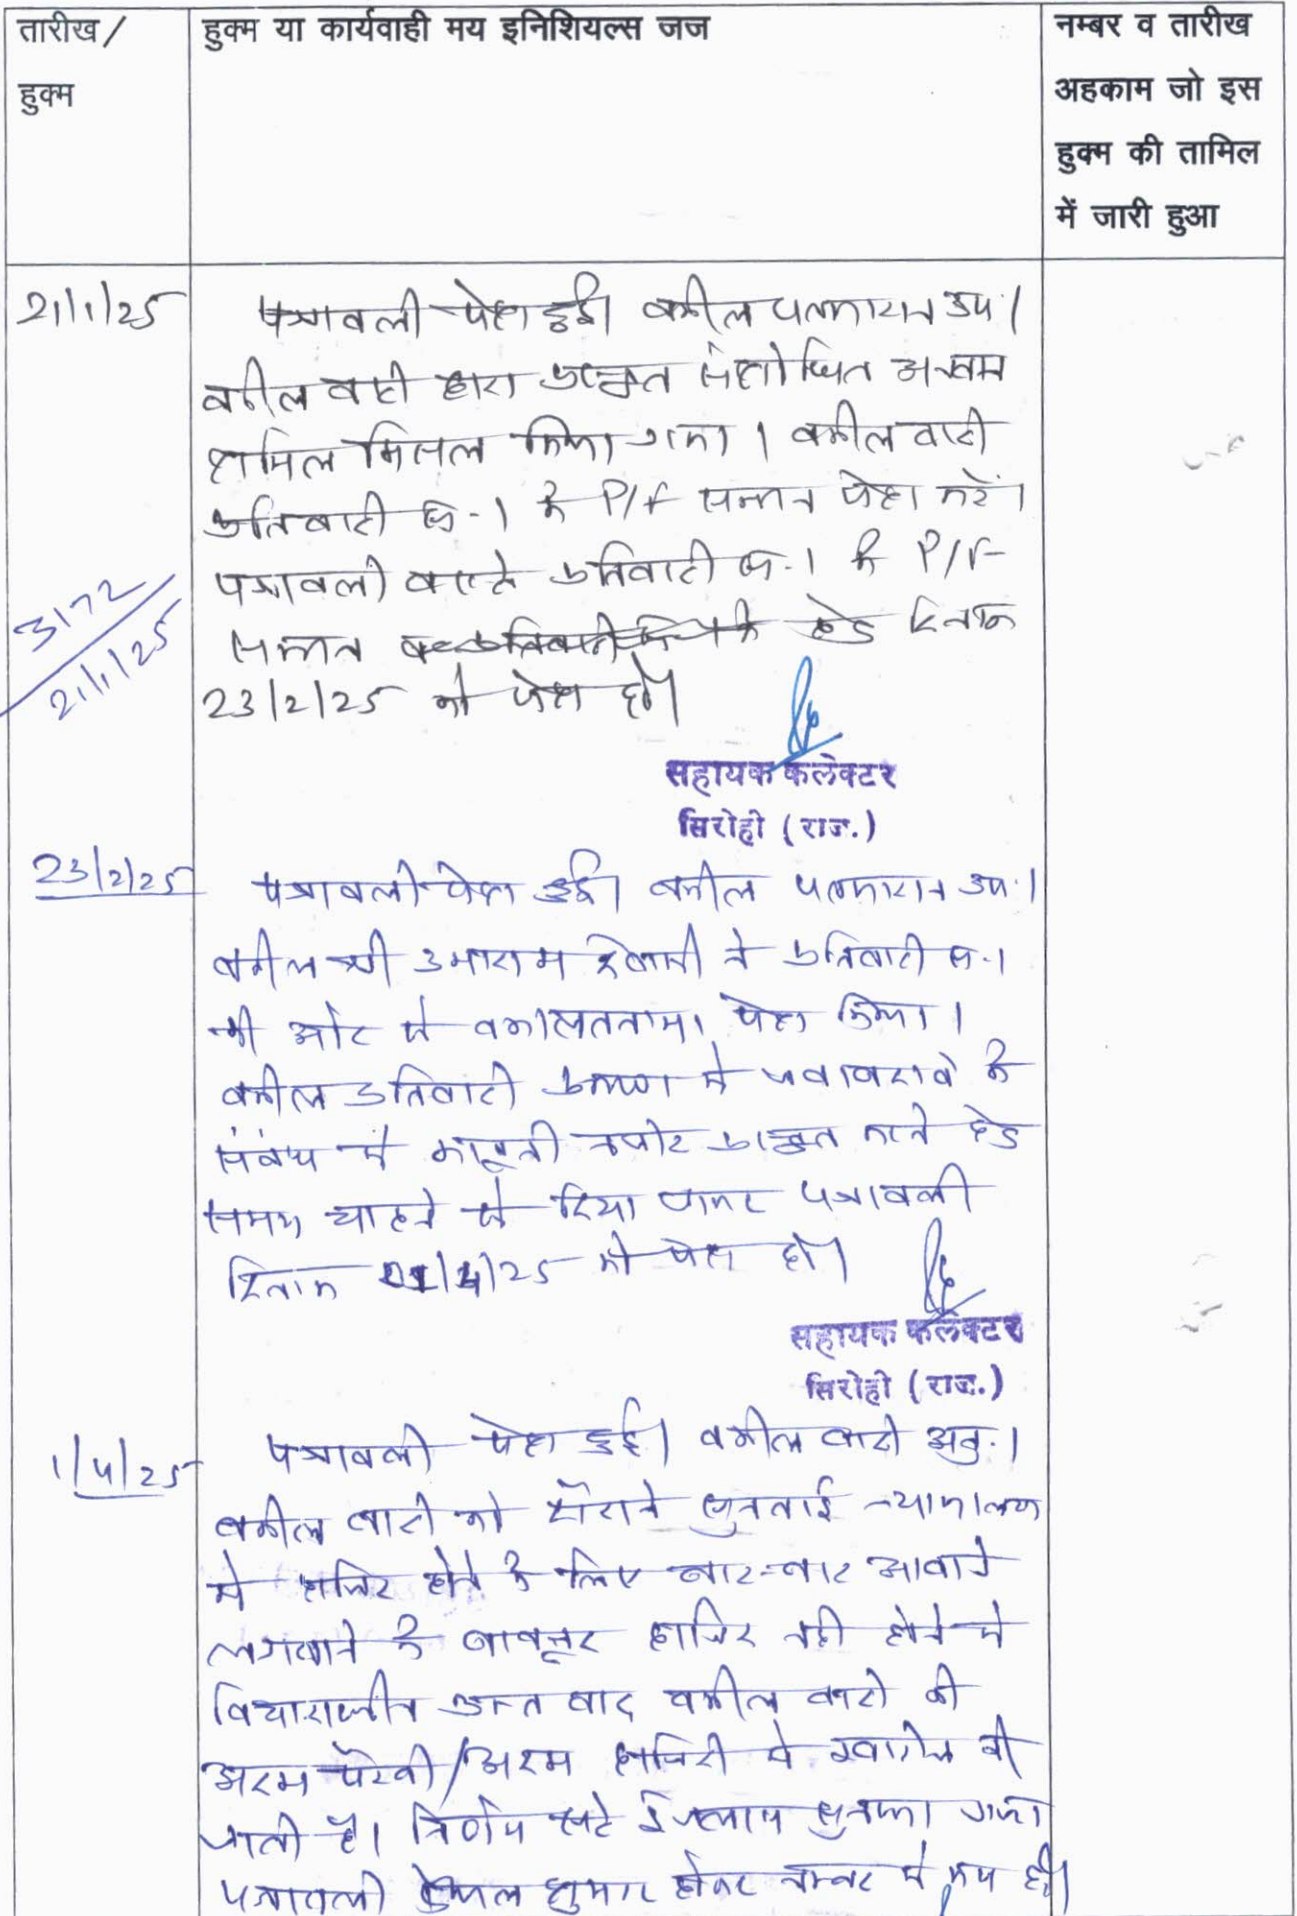 तारीख/
हुक्म
हुक्म या कार्यवाही मय इनिशियल्स जज
नम्बर व तारीख
अहकाम जो इस
हुक्म की तामिल
में जारी हुआ
21/1/25
पत्रावली पेश हुई। वकील पक्षकारान उप.।
वकील वादी द्वारा प्रस्तुत संशोधित
शामिल मिसल किया गया। वकील वादी
प्रतिवादी सं.-1 के P/F सम्मन पेश करें।
पत्रावली वास्ते प्रतिवादी सं.-1 के P/F
सम्मन हेतु दिनांक
23/2/25 को पेश हो।
3172
21/1/25
सहायक कलेक्टर
सिरोही (राज.)
23/2/25
पत्रावली पेश हुई। वकील पक्षकारान उप.।
वकील श्री उमाराम देवासी ने प्रतिवादी सं.-1
की ओर से वकालतनामा पेश किया।
वकील प्रतिवादी प्रकरण में जवाबदावे के
संबंध में कानूनी प्रस्तुत करने हेतु
समय चाहने से दिया जाकर पत्रावली
दिनांक 01/4/25 को पेश हो।
सहायक कलेक्टर
सिरोही (राज.)
1/4/25
पत्रावली पेश हुई। वकील वादी अनु.।
वकील वादी को दौराने सुनवाई न्यायालय
में हाजिर होने के लिए बार-बार आवाजे
लगवाने के बावजूद हाजिर नही होने से
विचाराधीन वाद वकील वादी की
अदम पैरवी/अदम हाजिरी में खारीज की
जाती है। निर्णय सरे ईजलास सुनाया गया
पत्रावली फैसल शुमार होकर नम्बर से कम हो।